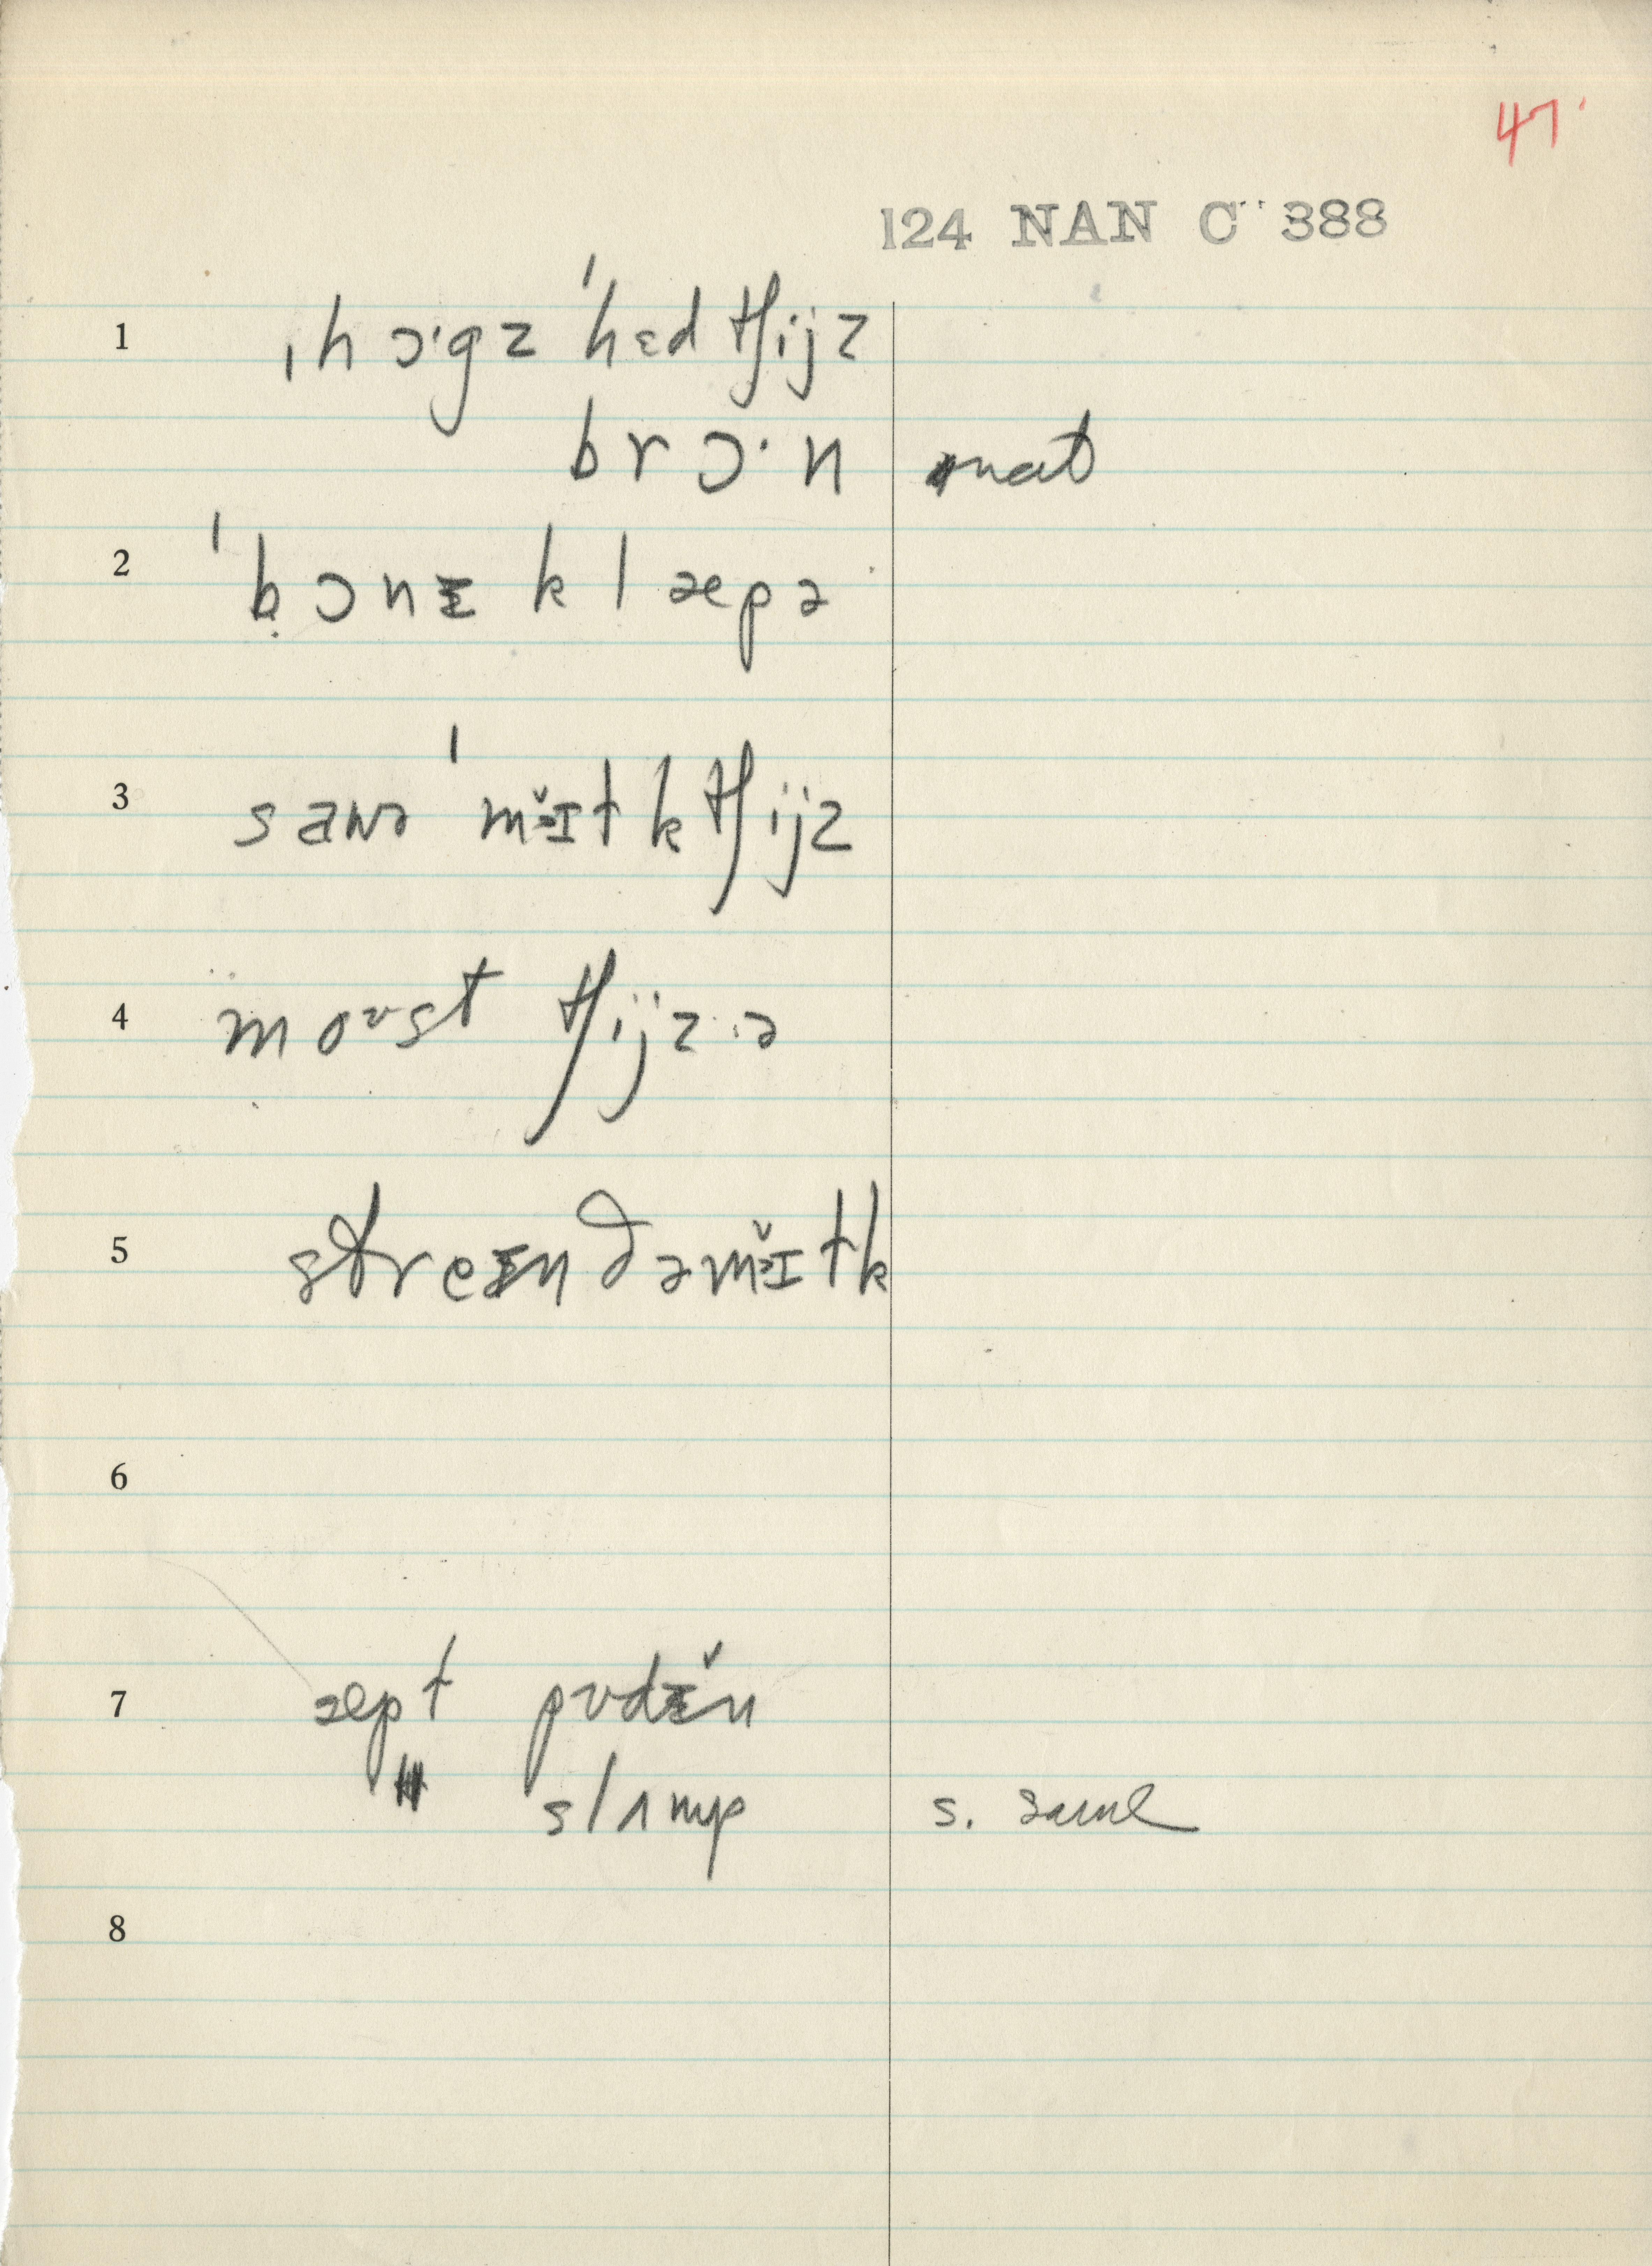 47
124 NAN C 388
1 ˌhɔ·gz ˈhɛd tʃijz
brɔ·n nat
2 ˈbɔnɪ klæpə
3 sawə ˈmɪ̆ɪtk tʃijz
4 moʊst tʃijz ə
5 streɪn ðə mɪ̆ɪtk
6
7 æpt pʊdɪ̆n
" slʌmp s. same
8